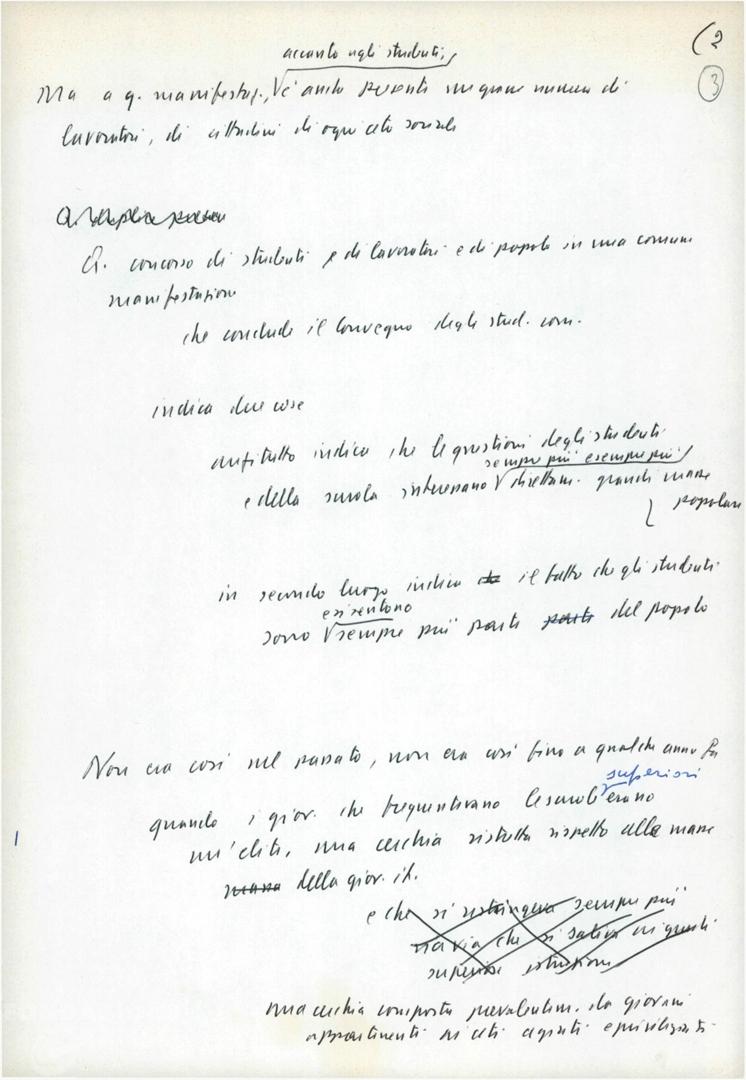 (2
3
accanto agli studenti,
Ma a q. manifestaz., v'è anche presente un gran numero di
lavoratori, di cittadini di ogni ceto sociale
Q.
Q. concorso di studenti e di lavoratori e di popolo in una comune
manifestazione
che conclude il Convegno degli stud. com.
indica due cose
anzitutto indica che le questioni degli studenti
sempre più e sempre più
e della scuola interessano direttam. grandi masse
popolari
in secondo luogo indica che il fatto che gli studenti
e si sentono
sono sempre più parte parte del popolo
Non era così nel passato, non era così fino a qualche anno fa
superiori
quando i giov. che frequentavano le scuole erano
un'élite, una cerchia ristretta rispetto alla massa
massa della giov. it.
e che si restringeva sempre più
via via che si saliva nei gradi
superiori istruzione
una cerchia composta prevalentem. da giovani
appartenenti ai ceti agiati e privilegiati